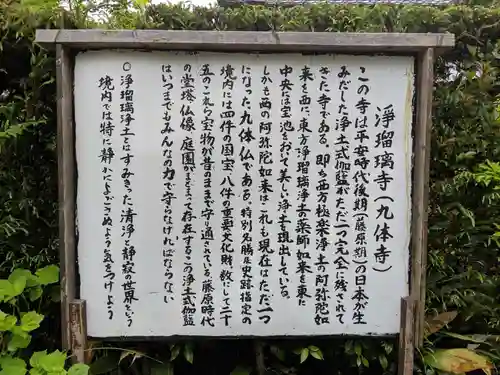 浄瑠璃寺(九体寺)
この寺は平安時代後期(藤原期)の日本が生
みだした浄土式伽藍がただ一つ完全に残されて
きた寺である。即ち西方極楽浄土の阿弥陀如
来を西に、東方浄瑠璃浄土の薬師如来を東に
中央には宝池をおいて美しい浄土を現出している。
しかも西の阿弥陀如来は、これも現在はただ一つ
になった九体仏である。特別名勝史跡指定の
境内には四件の国宝、八件の重要文化財、数にして二十
五のこれら宝物が昔のままで守り通されている。藤原時代
の堂塔、仏像、庭園がそろって存在するこの浄土式伽藍
はいつまでもみんなの力で守らなければならない
○浄瑠璃浄土とはすみきった清浄と静寂の世界という
境内では特に静かにすごうぬよう気をつけよう